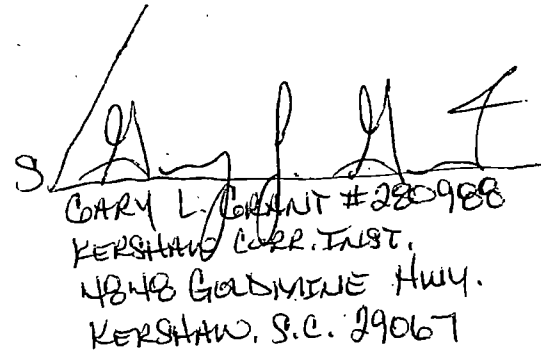 S/ Gary L. Grant
GARY L. GRANT #280988
KERSHAW CORR. INST.
4848 GOLDMINE HWY.
KERSHAW, S.C. 29067